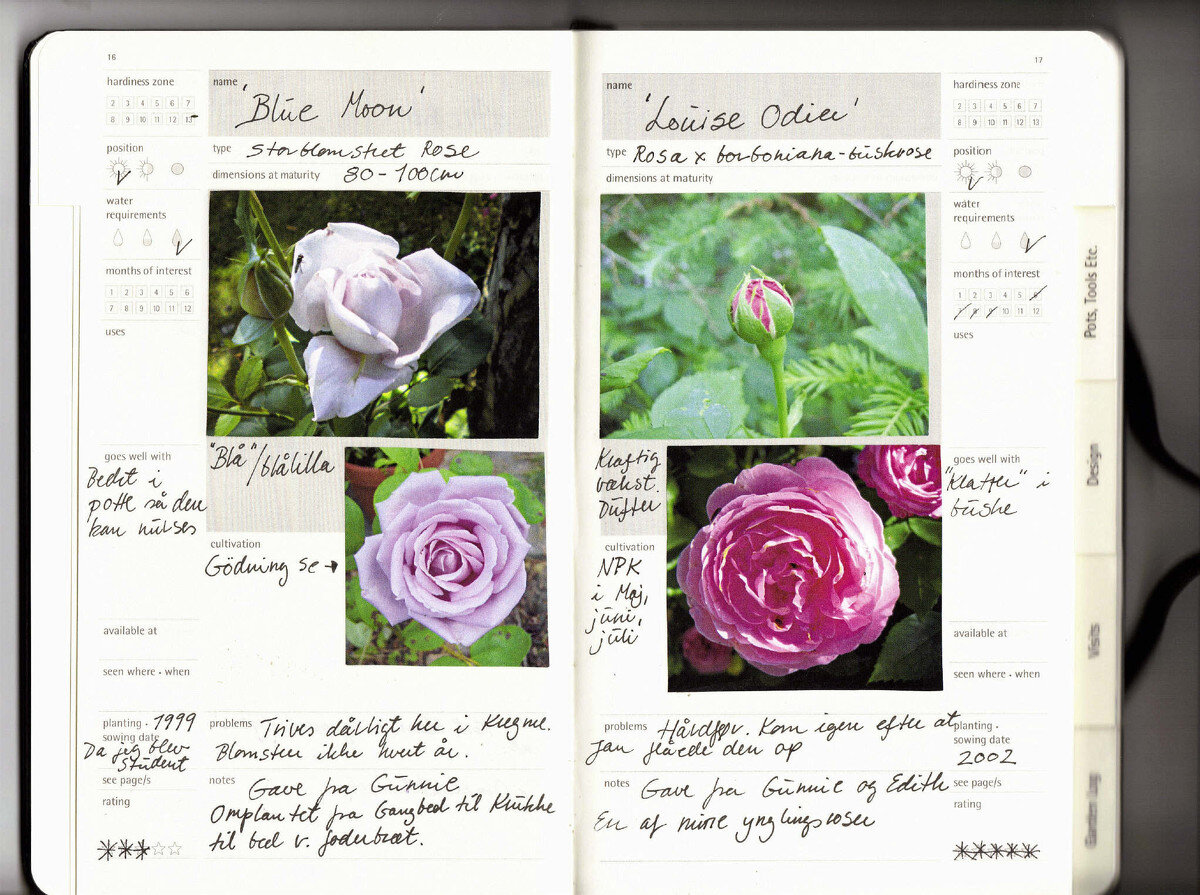 16
hardiness zone
2 3 4 5 6 7
8 9 10 11 12 13
position
water
requirements
months of interest
1 2 3 4 5 6
7 8 9 10 11 12
uses
goes well with
Bedst i
potte så den
kan nusses
available at
seen where · when
planting · 1999
sowing date
Da jeg blev
student
see page/s
rating
name 'Blue Moon'
type Storblomstret Rose
dimensions at maturity 80-100cm
"Blå"/blålilla
cultivation
Gödning se →
problems Trives dårligt her i Kregme.
Blomstrer ikke hvert år.
notes Gave fra Gunnie
Omplantet fra Gangbed til Krukke
til bed v. foderbræt.
17
name 'Louise Odier'
type Rosa x borboniana-buskrose
dimensions at maturity
Kraftig
vækst.
Dufter
cultivation
NPK
i Maj,
juni,
juli
problems Hårdfør. Kom igen efter at
jan fløede den op
notes Gave fra Gunnie og Edith
En af mine ynglingsroser
hardiness zone
2 3 4 5 6 7
8 9 10 11 12 13
position
water
requirements
months of interest
1 2 3 4 5 6
7 8 9 10 11 12
uses
goes well with
"Klatter" i
buske
available at
seen where · when
planting ·
sowing date
2002
see page/s
rating
Pots, Tools Etc.
Design
Visits
Garden Log